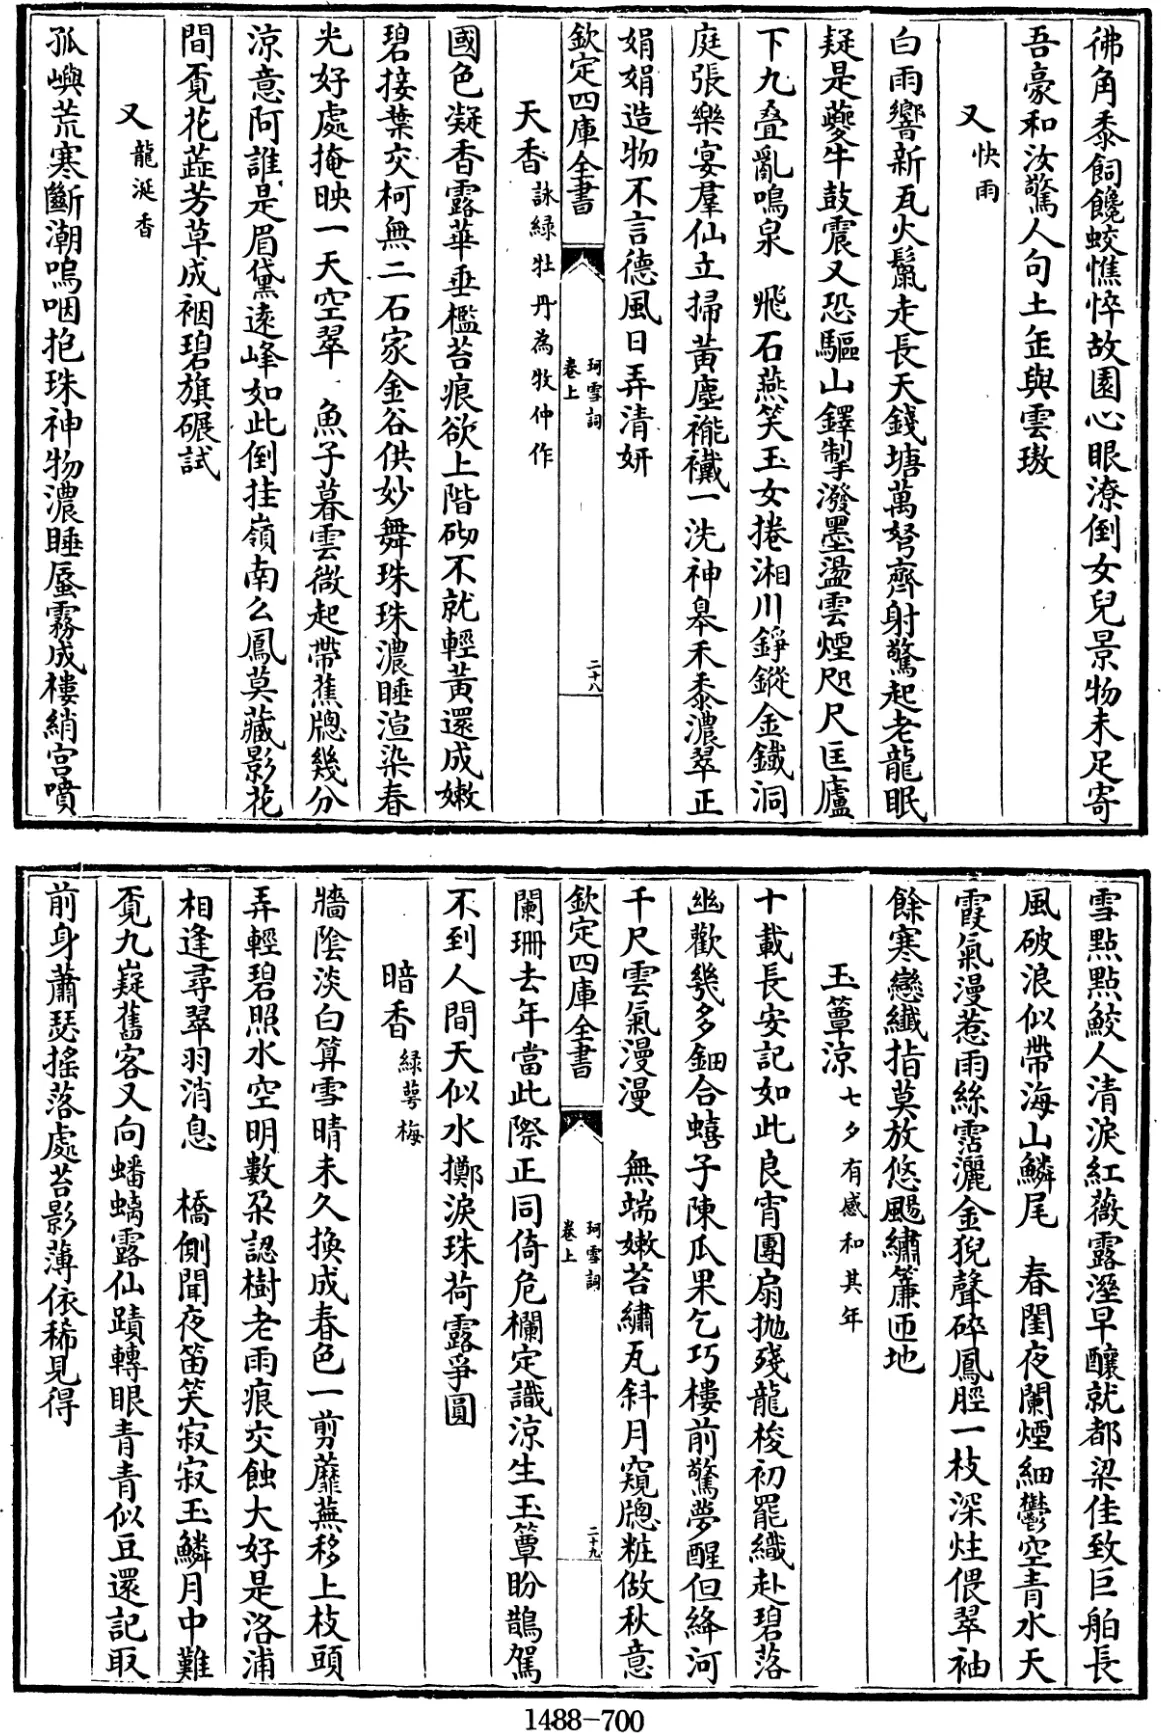 彿角黍飼饞蛟憔悴故園心眼潦倒女兒景物未足寄
吾豪和汝驚人句土缶與雲璈
又快雨
白雨響新瓦火鬣走長天錢塘萬弩齊射驚起老龍眠
疑是夔牛鼓震又恐驅山鐸掣潑墨盪雲煙咫尺匡廬
下九叠亂鳴泉 飛石燕笑玉女捲湘川錚鏦金鐵洞
庭張樂宴羣仙立掃黃塵襹襶一洗神皋禾黍濃翠正
娟娟造物不言德風日弄清妍
欽定四庫全書 珂雪詞卷上 二十八
天香詠綠牡丹為牧仲作
國色凝香露華垂檻苔痕欲上階砌不就輕黃還成嫩
碧接葉交柯無二石家金谷供妙舞珠珠濃睡渲染春
光好處掩映一天空翠 魚子暮雲微起帶蕉牕幾分
涼意阿誰是眉黛遠峰如此倒挂嶺南么鳳莫藏影花
間覔花蕋芳草成裀碧旗碾試
又龍涎香
孤嶼荒寒斷潮嗚咽抱珠神物濃睡蜃霧成樓綃宮噴
雪點點鮫人清淚紅薇露溼早釀就都梁佳致巨舶長
風破浪似帶海山鱗尾 春閨夜闌煙細鬱空青水天
霞氣漫惹雨絲霑灑金猊聲碎鳳脛一枝深炷偎翠袖
餘寒戀纖指莫放悠颺繡簾匝地
玉簟涼七夕有感和其年
十載長安記如此良宵團扇拋殘龍梭初罷織赴碧落
幽歡幾多鈿合蟢子陳瓜果乞巧樓前驚夢醒但絳河
千尺雲氣漫漫 無端嫩苔繡瓦斜月窺牕粧做秋意
欽定四庫全書 珂雪詞卷上 二十九
闌珊去年當此際正同倚危欄定識涼生玉簟盼鵲駕
不到人間天似水擲淚珠荷露爭圓
暗香綠萼梅
牆陰淡白算雪晴未久換成春色一剪蘼蕪移上枝頭
弄輕碧照水空明數朶認樹老雨痕交蝕大好是洛浦
相逢尋翠羽消息 橋側聞夜笛笑寂寂玉鱗月中難
覔九嶷舊客又向蟠螭露仙蹟轉眼青青似豆還記取
前身蕭瑟搖落處苔影薄依稀見得
1488-700